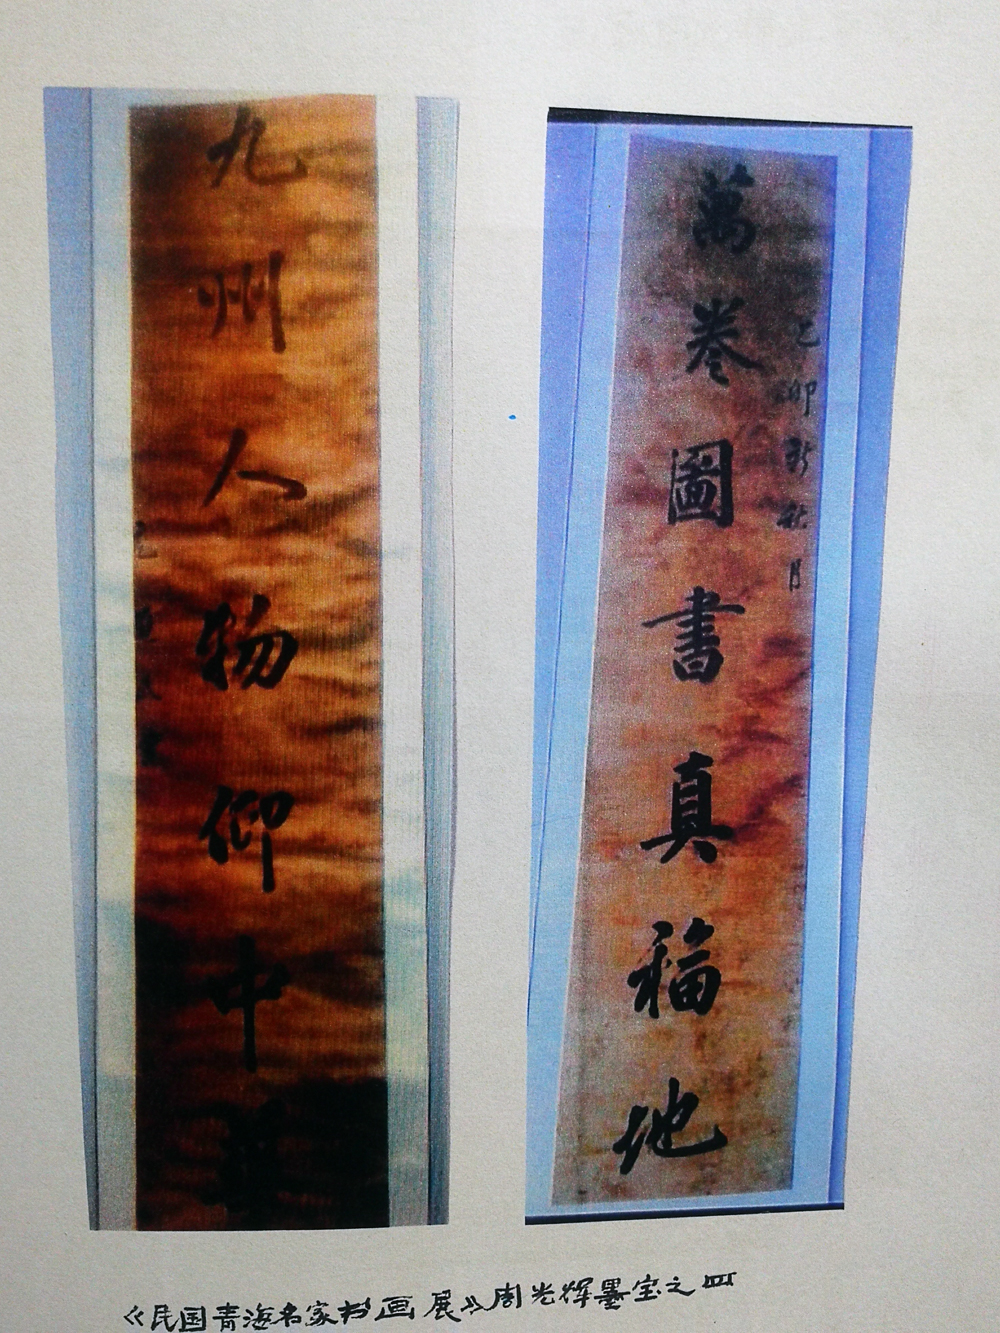 萬卷圖書真福地
乙卯新秋月
九州人物仰中
《民国青海名家书画展》周光辉墨宝之四